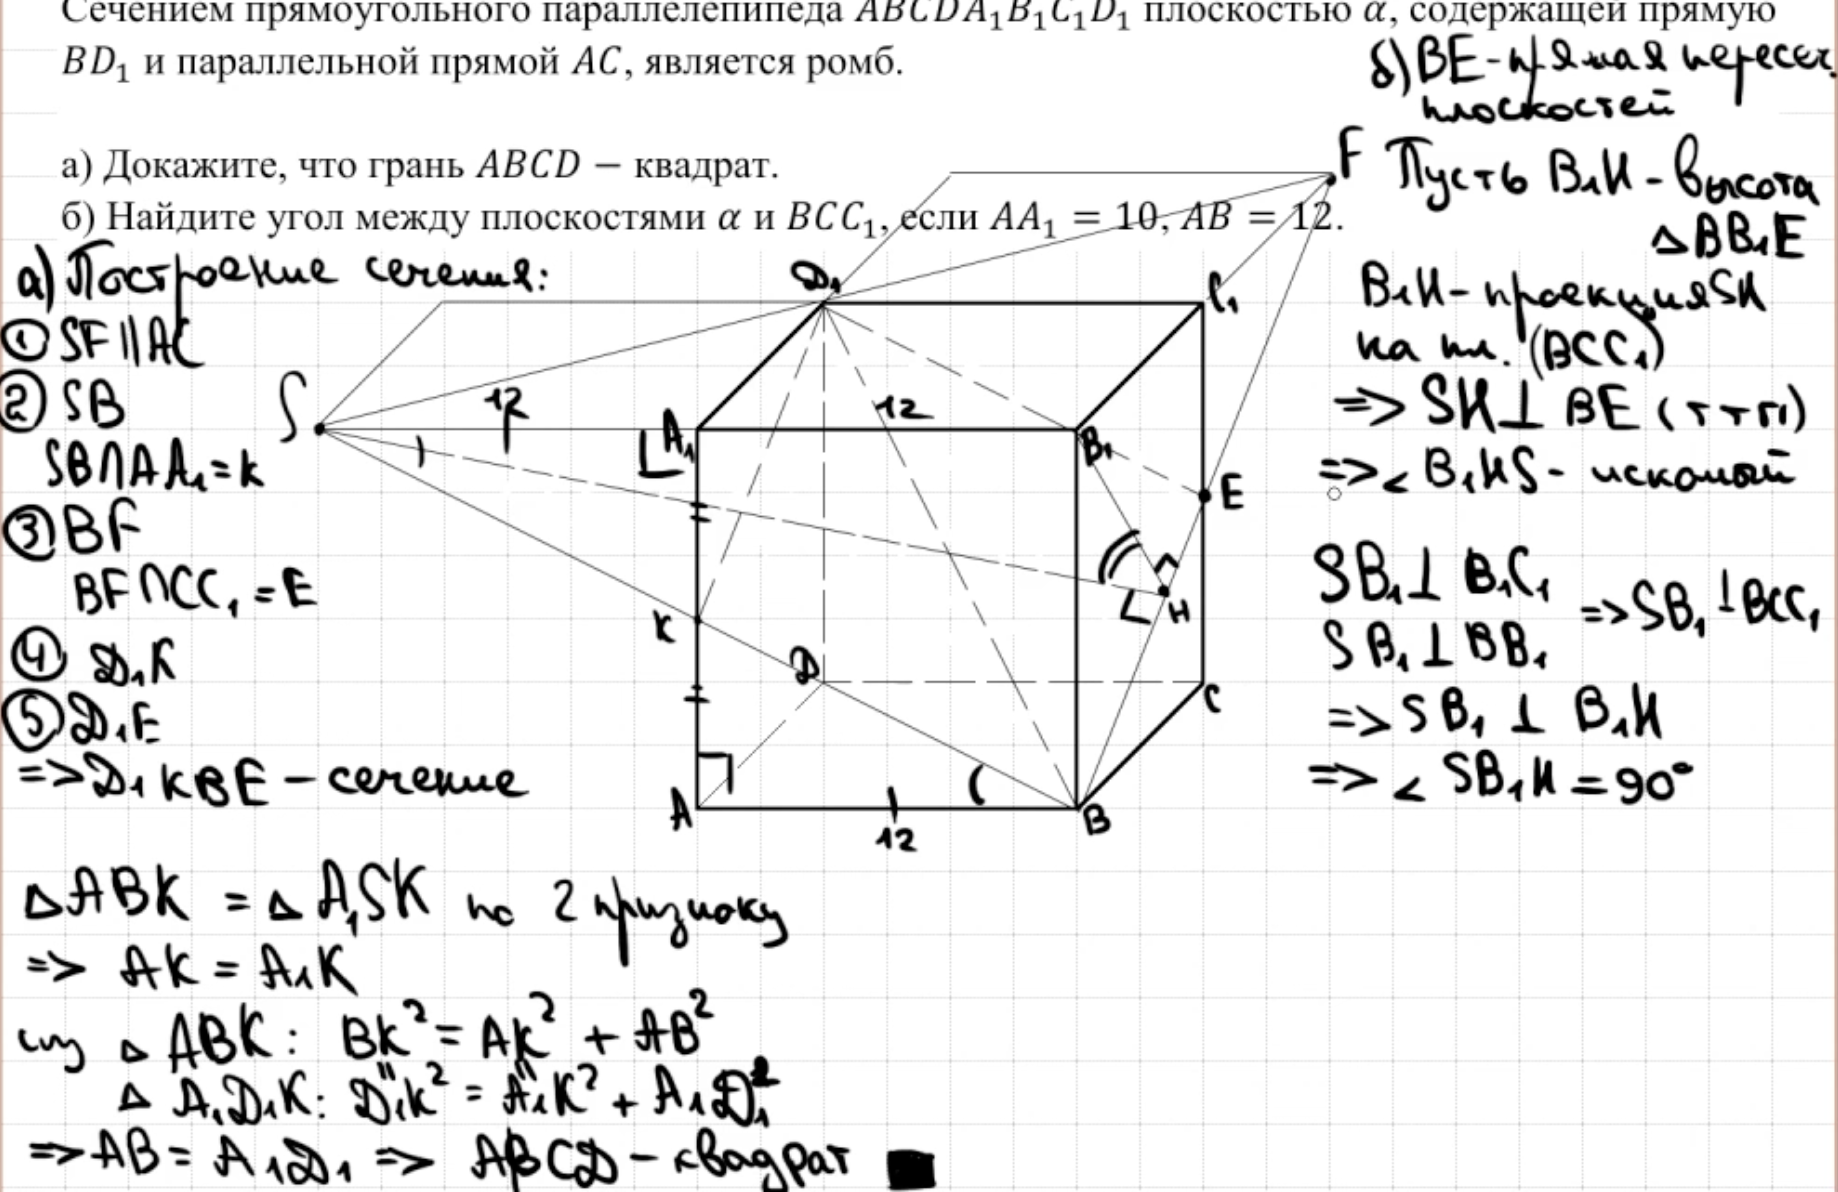 Сечением прямоугольного параллелепипеда ABCDA₁B₁C₁D₁ плоскостью α, содержащей прямую
BD₁ и параллельной прямой AC, является ромб.
а) Докажите, что грань ABCD − квадрат.
б) Найдите угол между плоскостями α и BCC₁, если AA₁ = 10, AB = 12.
а) Построение сечения:
① SF || AC
② SB
SB ∩ AA₁ = K
③ BF
BF ∩ CC₁ = E
④ D₁K
⑤ D₁E
=> D₁KBE – сечение
△ABK = △A₁SK по 2 признаку
=> AK = A₁K
из △ ABK: BK² = AK² + AB²
" "
△ A₁D₁K: D₁K² = A₁K² + A₁D₁²
=> AB = A₁D₁ => ABCD – квадрат
S
12
D₁
12
F
C₁
A₁
B₁
E
K
H
D
C
A
12
B
б) BE - прямая пересеч.
плоскостей
Пусть B₁H - высота
△BB₁E
B₁H - проекция SH
на пл. (BCC₁)
=> SH ⊥ BE (ттп)
=> ∠ B₁HS - искомый
SB₁ ⊥ B₁C₁
SB₁ ⊥ BB₁
=> SB₁ ⊥ BCC₁
=> SB₁ ⊥ B₁H
=> ∠ SB₁H = 90°